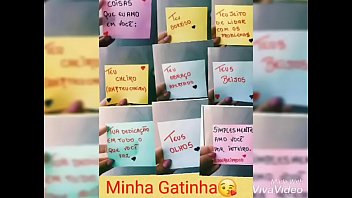 COISAS
QUE EU AMO
EM VOCÊ:
TEU
SORRISO
TEU JEITO
DE LIDAR
COM OS
PROBLEMAS
TEU
CHEIRO
TEU
ABRAÇO
APERTADO
TEUS
BEIJOS
SUA DEDICAÇÃO
EM TUDO O
QUE VOCÊ
FAZ
TEUS
OLHOS
SIMPLESMENTE
AMO VOCÊ
POR INTEIRO.
Minha Gatinha😘
Made With
VivaVideo